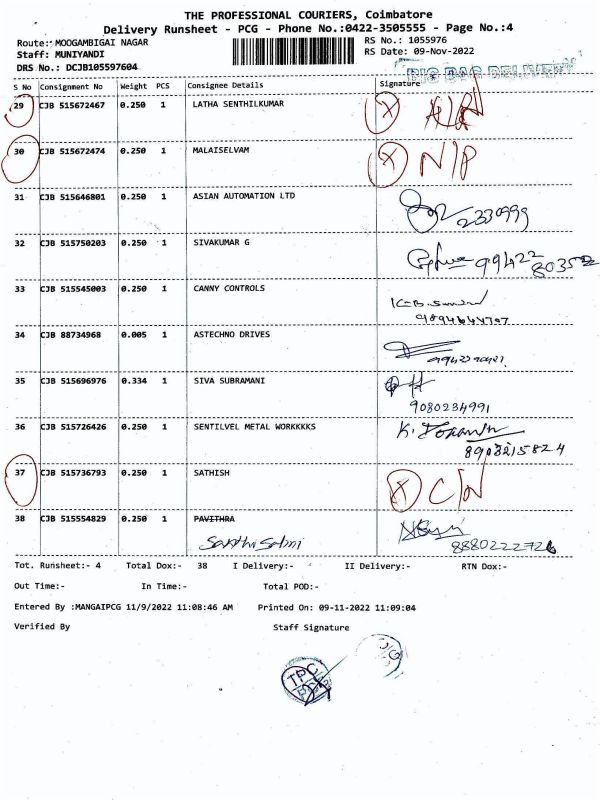 THE PROFESSIONAL COURIERS, Coimbatore
Delivery Runsheet - PCG - Phone No.:0422-3505555 - Page No.:4
Route: MOOGAMBIGAI NAGAR RS No.: 1055976
Staff: MUNIYANDI RS Date: 09-Nov-2022
DRS No.: DCJB105597604
BIG BAG DELIVERY
S No Consignment No Weight PCS Consignee Details Signature
29 CJB 515672467 0.250 1 LATHA SENTHILKUMAR X
30 CJB 515672474 0.250 1 MALAISELVAM X N/P
31 CJB 515646801 0.250 1 ASIAN AUTOMATION LTD 2330999
32 CJB 515750203 0.250 1 SIVAKUMAR G 99422
80350
33 CJB 515545003 0.250 1 CANNY CONTROLS
9894644707
34 CJB 88734968 0.005 1 ASTECHNO DRIVES
35 CJB 515696976 0.334 1 SIVA SUBRAMANI
9080234991
36 CJB 515726426 0.250 1 SENTILVEL METAL WORKKKKS K.
8908215824
37 CJB 515736793 0.250 1 SATHISH X C/N
38 CJB 515554829 0.250 1 PAVITHRA
8880222726
Tot. Runsheet:- 4 Total Dox:- 38 I Delivery:- II Delivery:- RTN Dox:-
Out Time:- In Time:- Total POD:-
Entered By :MANGAIPCG 11/9/2022 11:08:46 AM Printed On: 09-11-2022 11:09:04
Verified By Staff Signature
TPC